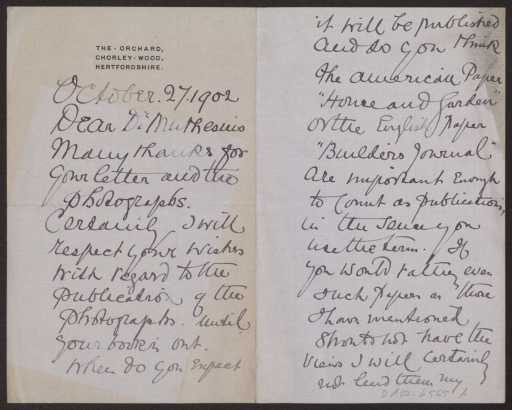 THE · ORCHARD,
CHORLEY · WOOD,
HERTFORDSHIRE.
October. 27, 1902
Dear Dr Muthesius
Many thanks for
your letter and the
photographs.
Certainly I will
respect your wishes
with regard to the
publication of the
photographs. until
your book is out.
When do you expect
it will be published
and do you think
the american Paper
"House and Garden"
or the English paper
"Builders Journal"
are important enough
to count as publications,
in the sense you
use the term. If
you would rather even
such papers as those
I have mentioned
should not have the
views I will certainly
not lend them my